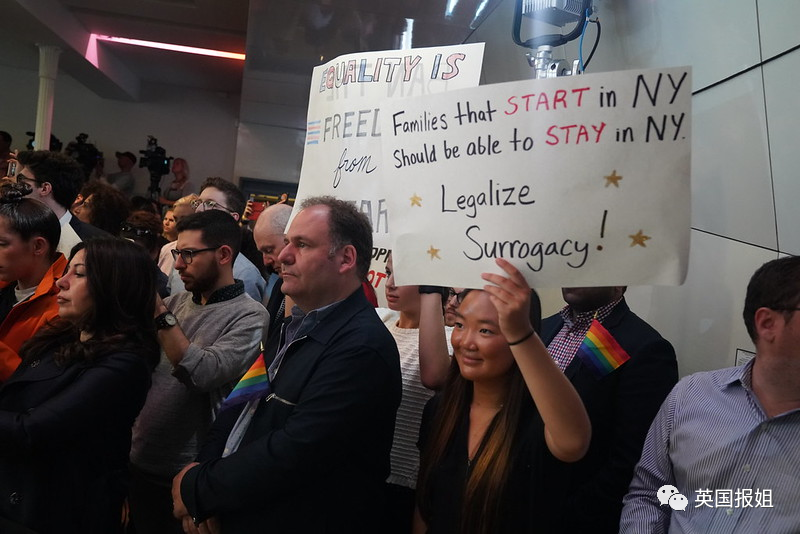 EQUALITY IS
FREED
from
Families that START in NY
Should be able to STAY in NY.
Legalize
Surrogacy!
英国报姐